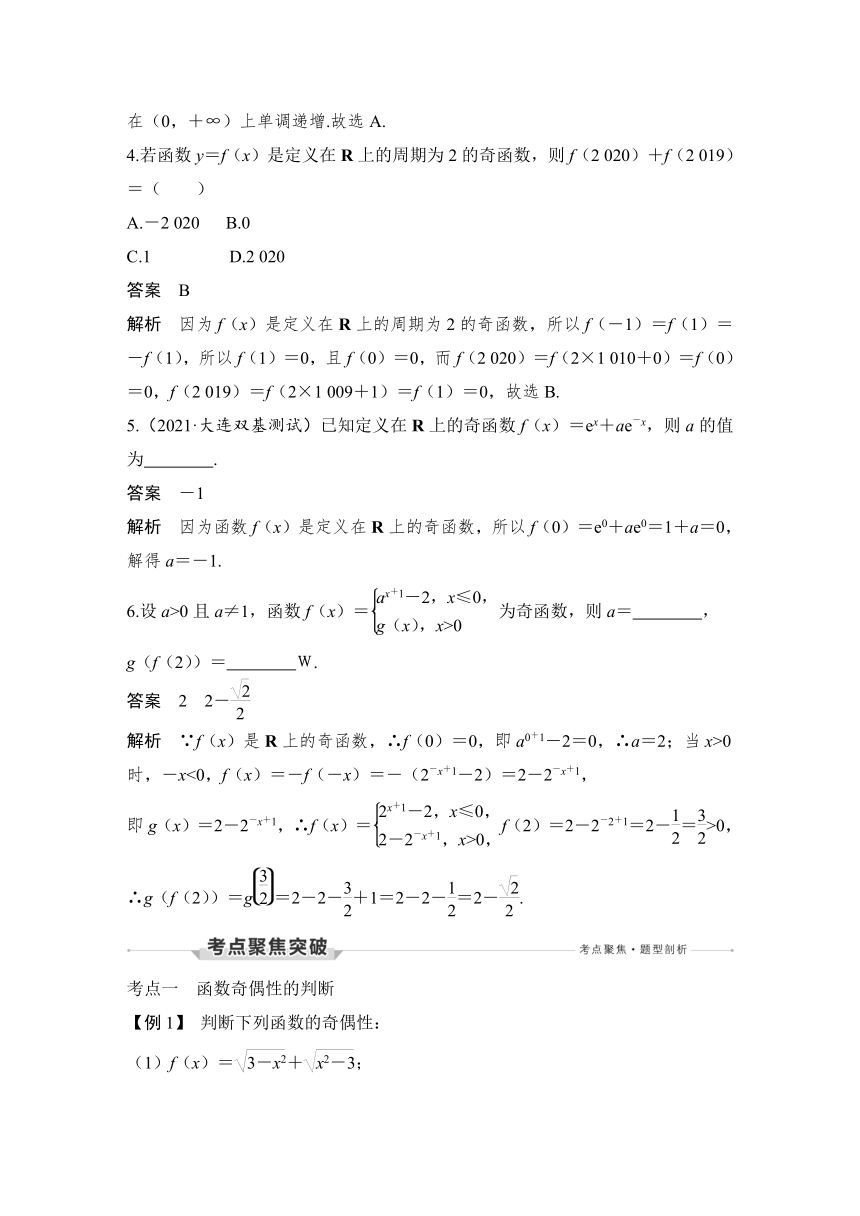 在(0，+∞)上单调递增.故选 A.
4.若函数 y＝f(x)是定义在 R 上的周期为 2 的奇函数，则 f(2 020)＋f(2 019)
＝(　　)
A.－2 020　B.0
C.1　　　D.2 020
答案　B
解析　因为 f(x)是定义在 R 上的周期为 2 的奇函数，所以 f(－1)＝f(1)＝
－f(1)，所以 f(1)＝0，且 f(0)＝0，而 f(2 020)＝f(2×1 010＋0)＝f(0)
＝0，f(2 019)＝f(2×1 009＋1)＝f(1)＝0，故选 B.
5.(2021·大连双基测试)已知定义在 R 上的奇函数 f(x)＝eˣ＋ae⁻ˣ，则 a 的值
为________.
答案　－1
解析　因为函数 f(x)是定义在 R 上的奇函数，所以 f(0)＝e⁰＋ae⁰＝1＋a＝0，
解得 a＝－1.
6.设 a>0 且 a≠1，函数 f(x)＝{aˣ⁺¹－2，x≤0，g(x)，x>0 为奇函数，则 a＝________，
g(f(2))＝________W.
答案　2　2－√2/2
解析　∵f(x)是 R 上的奇函数，∴f(0)＝0，即 a⁰⁺¹－2＝0，∴a＝2；当 x>0
时，－x<0，f(x)＝－f(－x)＝－(2⁻ˣ⁺¹－2)＝2－2⁻ˣ⁺¹，
即 g(x)＝2－2⁻ˣ⁺¹，∴f(x)＝{2ˣ⁺¹－2，x≤0，2－2⁻ˣ⁺¹，x>0，f(2)＝2－2⁻²⁺¹＝2－1/2＝3/2>0，
∴g(f(2))＝g(3/2)＝2－2－3/2＋1＝2－2－1/2＝2－√2/2.
考点聚焦突破　考点聚焦·题型剖析
考点一　函数奇偶性的判断
【例 1】 判断下列函数的奇偶性：
(1)f(x)＝√(3－x²)＋√(x²－3)；